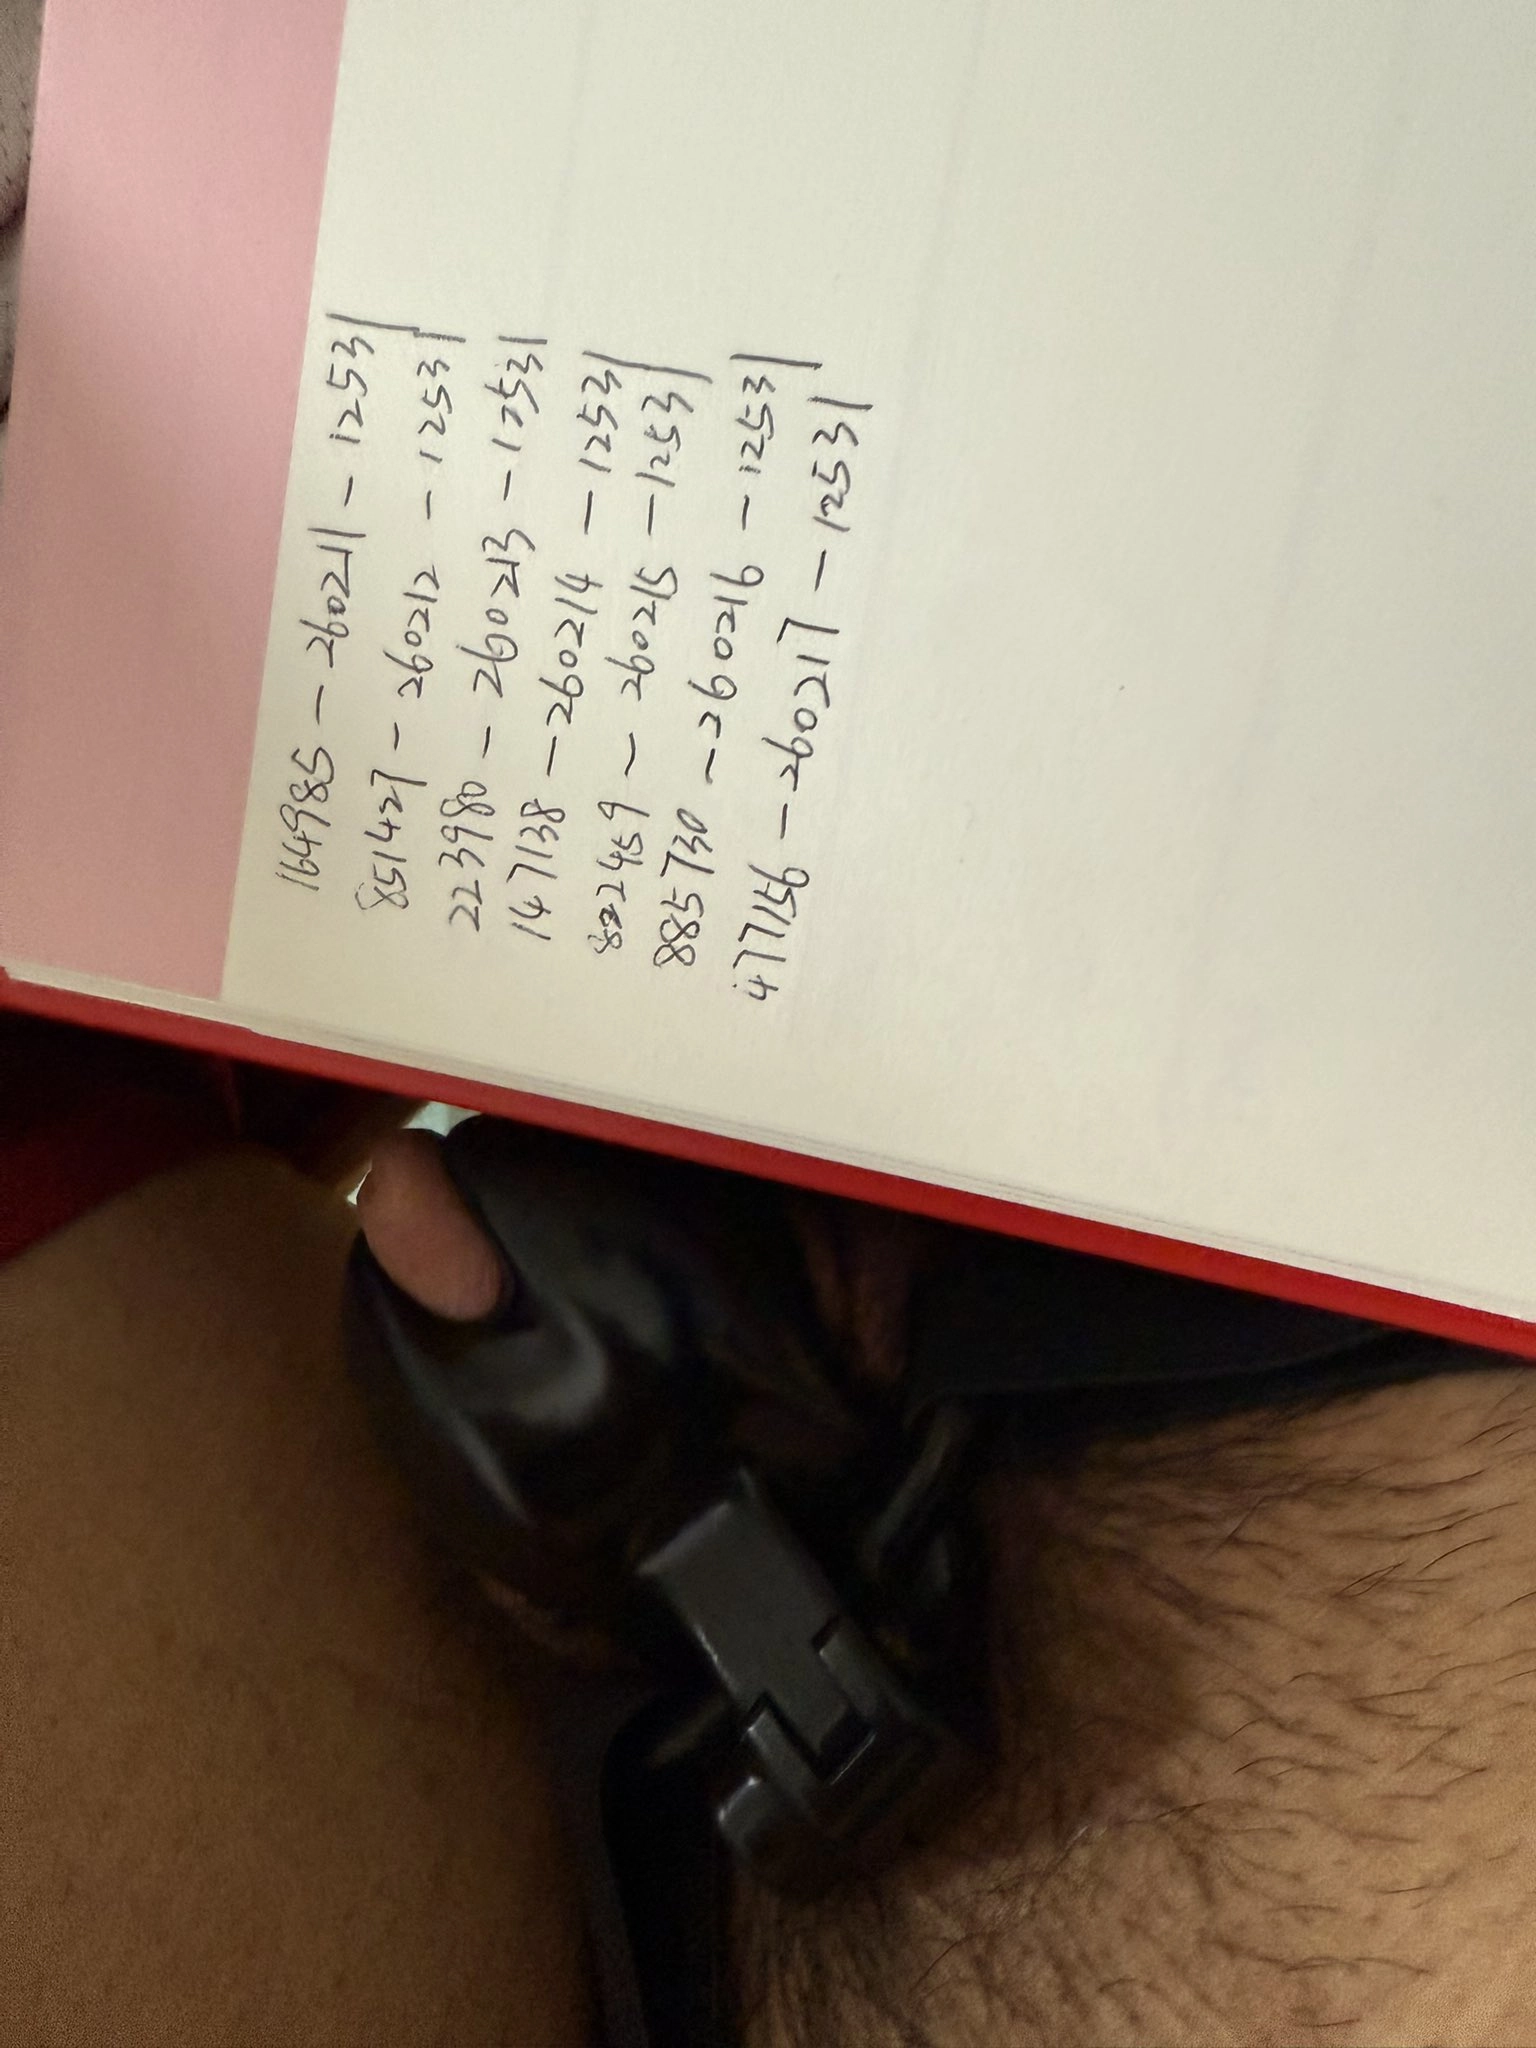 164985 - 260211 - 12531
851427 - 260212 - 12531
223980 - 260213 - 12531
147138 - 260214 - 12531
822459 - 260215 - 12531
885730 - 260216 - 12531
477156 - 260217 - 12531